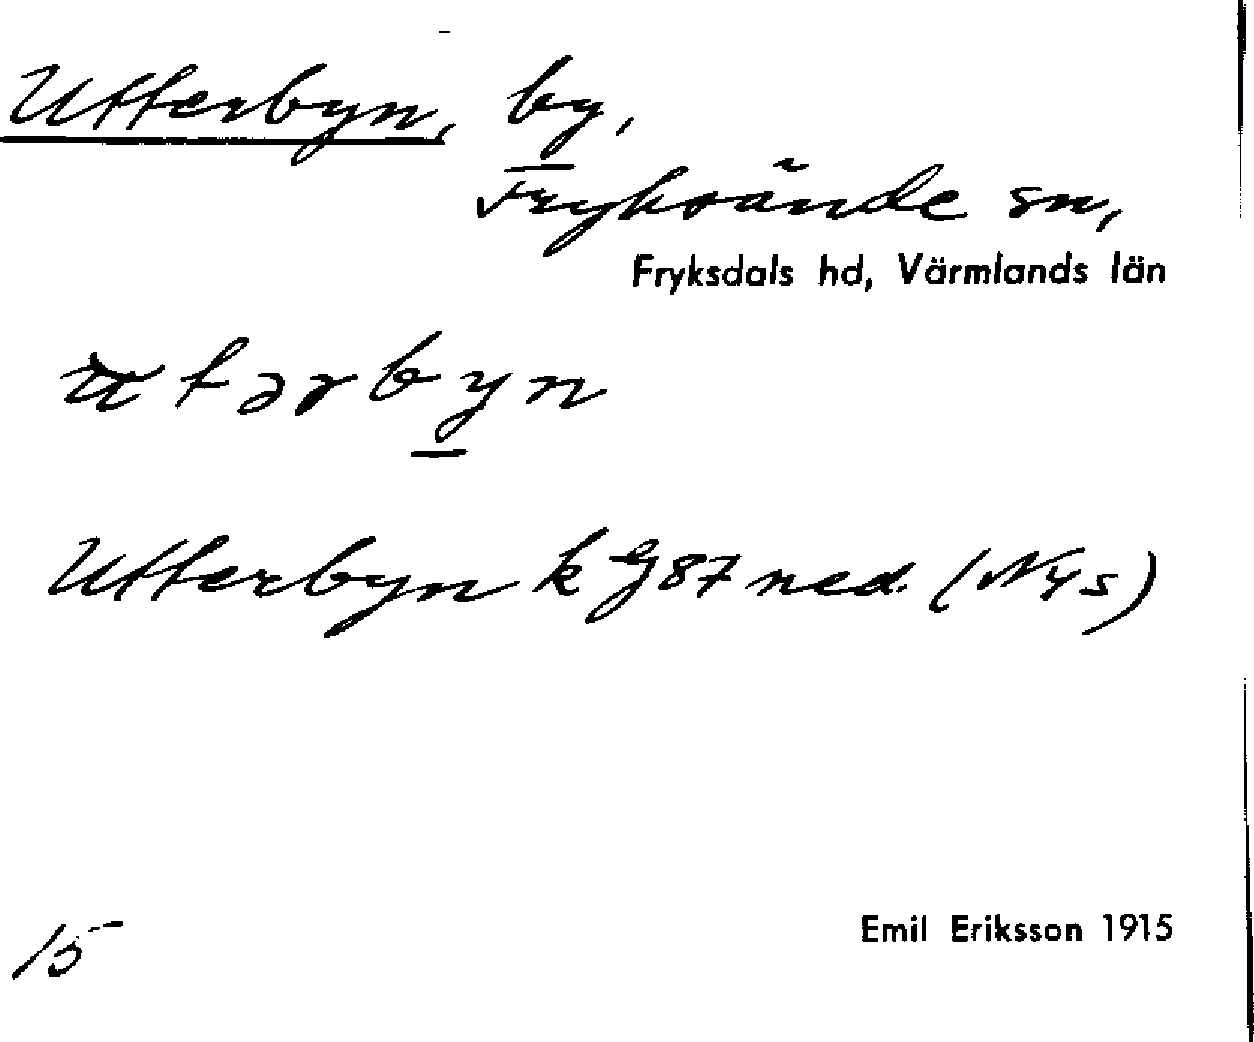 Utterbyn, by,
Fryksände sn,
Fryksdals hd, Värmlands län
utərbyn
Utterbyn k G 87 ned. (NYs)
15
Emil Eriksson 1915